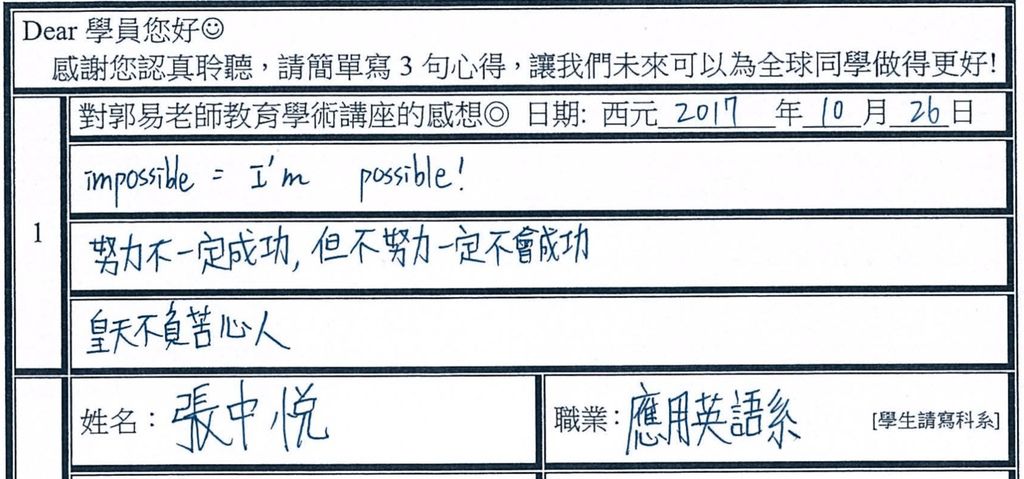 Dear 學員您好☺
感謝您認真聆聽，請簡單寫 3 句心得，讓我們未來可以為全球同學做得更好!
對郭易老師教育學術講座的感想◎ 日期: 西元 2017 年 10 月 26 日
1
impossible = I'm possible!
努力不一定成功, 但不努力一定不會成功
皇天不負苦心人
姓名：張中悅 職業：應用英語系 [學生請寫科系]